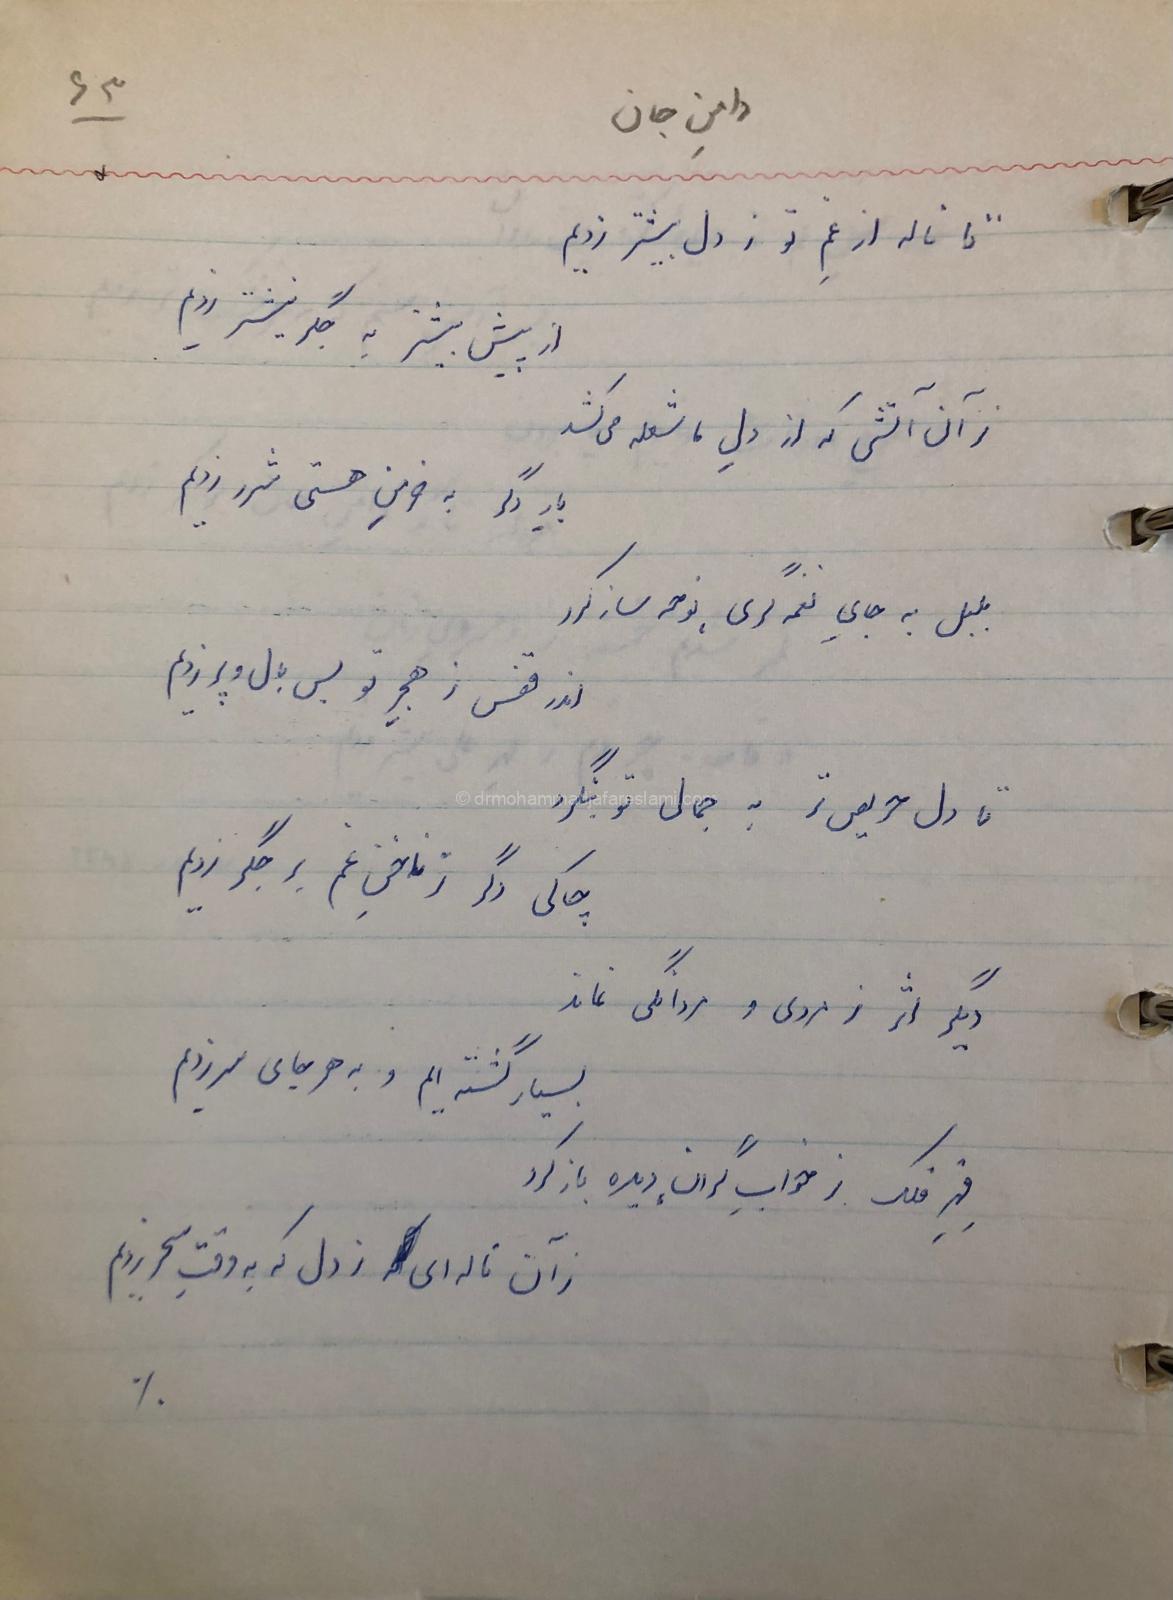 ۶۳
دامنِ جان
تا ناله از غمِ تو ز دل بیشتر زدیم
از پیش بیشتر به جگر نیشتر زدیم
زآن آتشی که از دلِ ما شعله می‌کشد
بارِ دگر به خرمنِ هستی شرر زدیم
بلبل به جایِ نغمه‌گری، نوحه ساز کرد
اندر قفس ز هجرِ تو بس بال و پر زدیم
تا دل حریص‌تر به جمالی تو بنگرد
چاکی دگر ز ناخنِ غم بر جگر زدیم
دیگر اثر ز مردی و مردانگی نماند
بسیار گشته‌ایم و به هر جای سر زدیم
قهرِ فلک ز خوابِ گران، دیده باز کرد
زآن ناله‌ای ز دل که به وقتِ سحر زدیم
٪
© drmohammadjafareslami.com